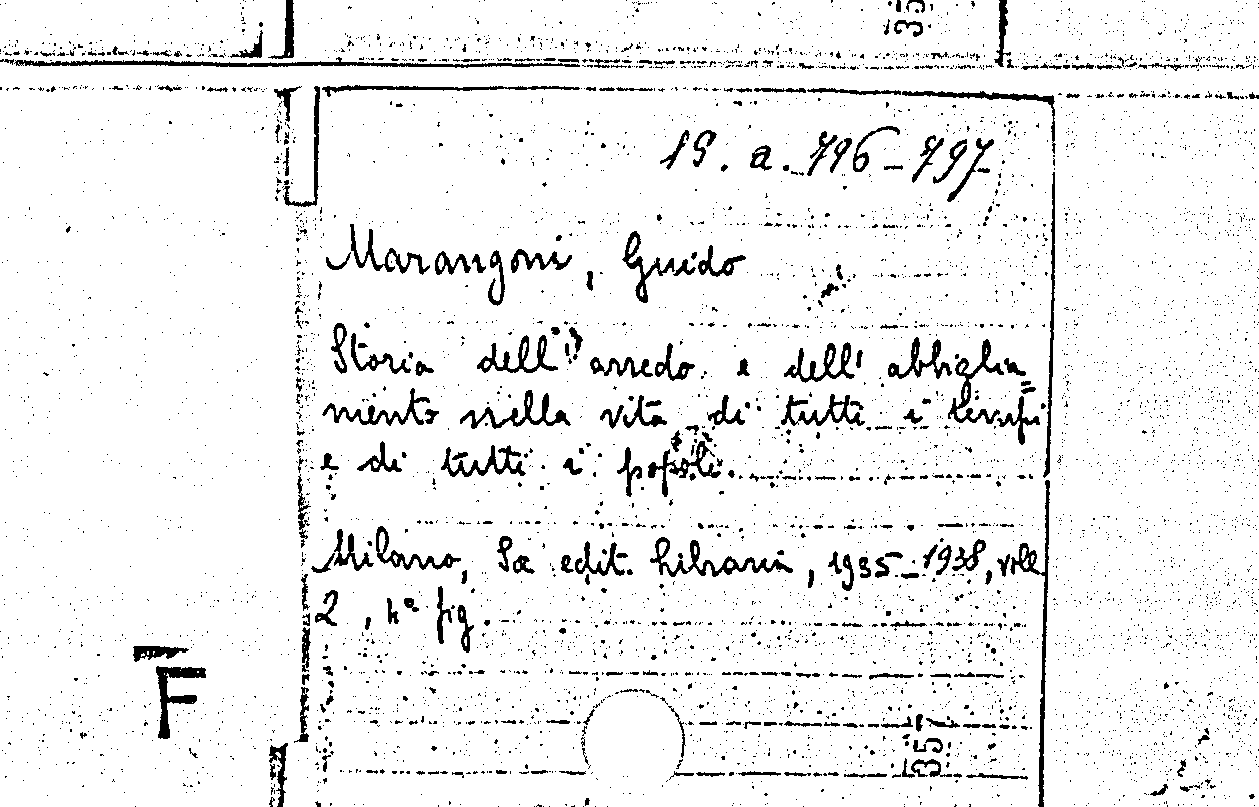 35
19. a. 796-797
Marangoni, Guido
Storia dell' arredo e dell' abbiglia=
mento nella vita di tutti i tempi
e di tutti i popoli.
Milano, Soc. edit. Libraria, 1935-1938, voll.
2, 4° fig.
F
357